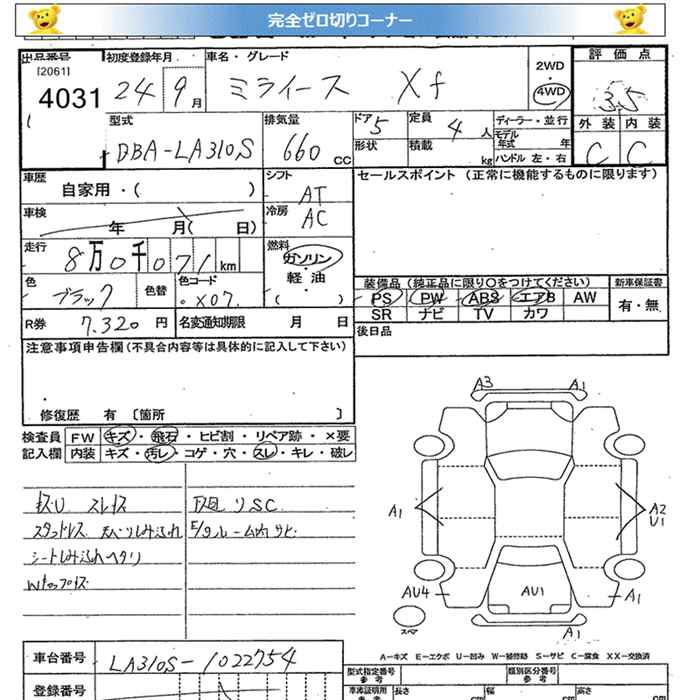 完全ゼロ切りコーナー
出品番号 初度登録年月 車名・グレード 評価点
[2061]
4031 24 9月 ミライース Xf 2WD・4WD 3.5
型式 排気量 ドア 5 定員 4人 ディーラー・並行 外装 内装
DBA-LA310S 660cc 形状 積載 kg モデル年式 年 C C
ハンドル 左・右
車歴 シフト セールスポイント (正常に機能するものに限ります)
自家用・( ) AT
車検 年 月( 日) 冷房 AC
走行 8万0千071km 燃料 ガソリン・軽油・( )
色 ブラック 色替 色コード X07 装備品 (純正品に限り○をつけてください) 新車保証書
PS PW ABS エアB AW 有・無
SR ナビ TV カワ
R券 7,320円 名変通知期限 月 日 後日品
注意事項申告欄(不具合内容等は具体的に記入して下さい)
修復歴 有 〔箇所 〕
検査員記入欄 FW キズ・飛石・ヒビ割・リペア跡・×要
内装 キズ・汚レ・コゲ・穴・スレ・キレ・破レ
シートしみ汚れヘタリ
A3 A1
A1 A2
U1
AU4 AU1 A1
スペア A1
A-キズ E-エクボ U-凹み W-補修跡 S-サビ C-腐食 XX-交換済
車台番号 LA310S-1022754 型式指定番号 参考 類別区分番号 参考
登録番号 車庫証明用 参考 長さ cm 幅 cm 高さ cm